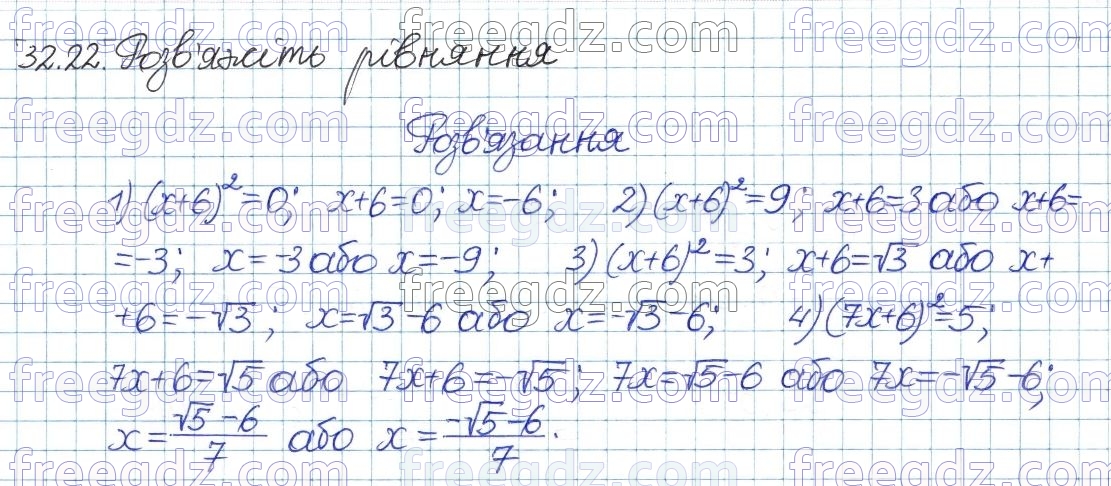 32.22. Розв'яжіть рівняння
Розв'язання
1) (x+6)²=0; x+6=0; x=-6; 2) (x+6)²=9; x+6=3 або x+6=
=-3; x=-3 або x=-9; 3) (x+6)²=3; x+6=√3 або x+
+6=-√3; x=√3-6 або x=-√3-6; 4) (7x+6)²=5;
7x+6=√5 або 7x+6=-√5; 7x=√5-6 або 7x=-√5-6;
x=(√5-6)/7 або x=(-√5-6)/7.
freegdz.com